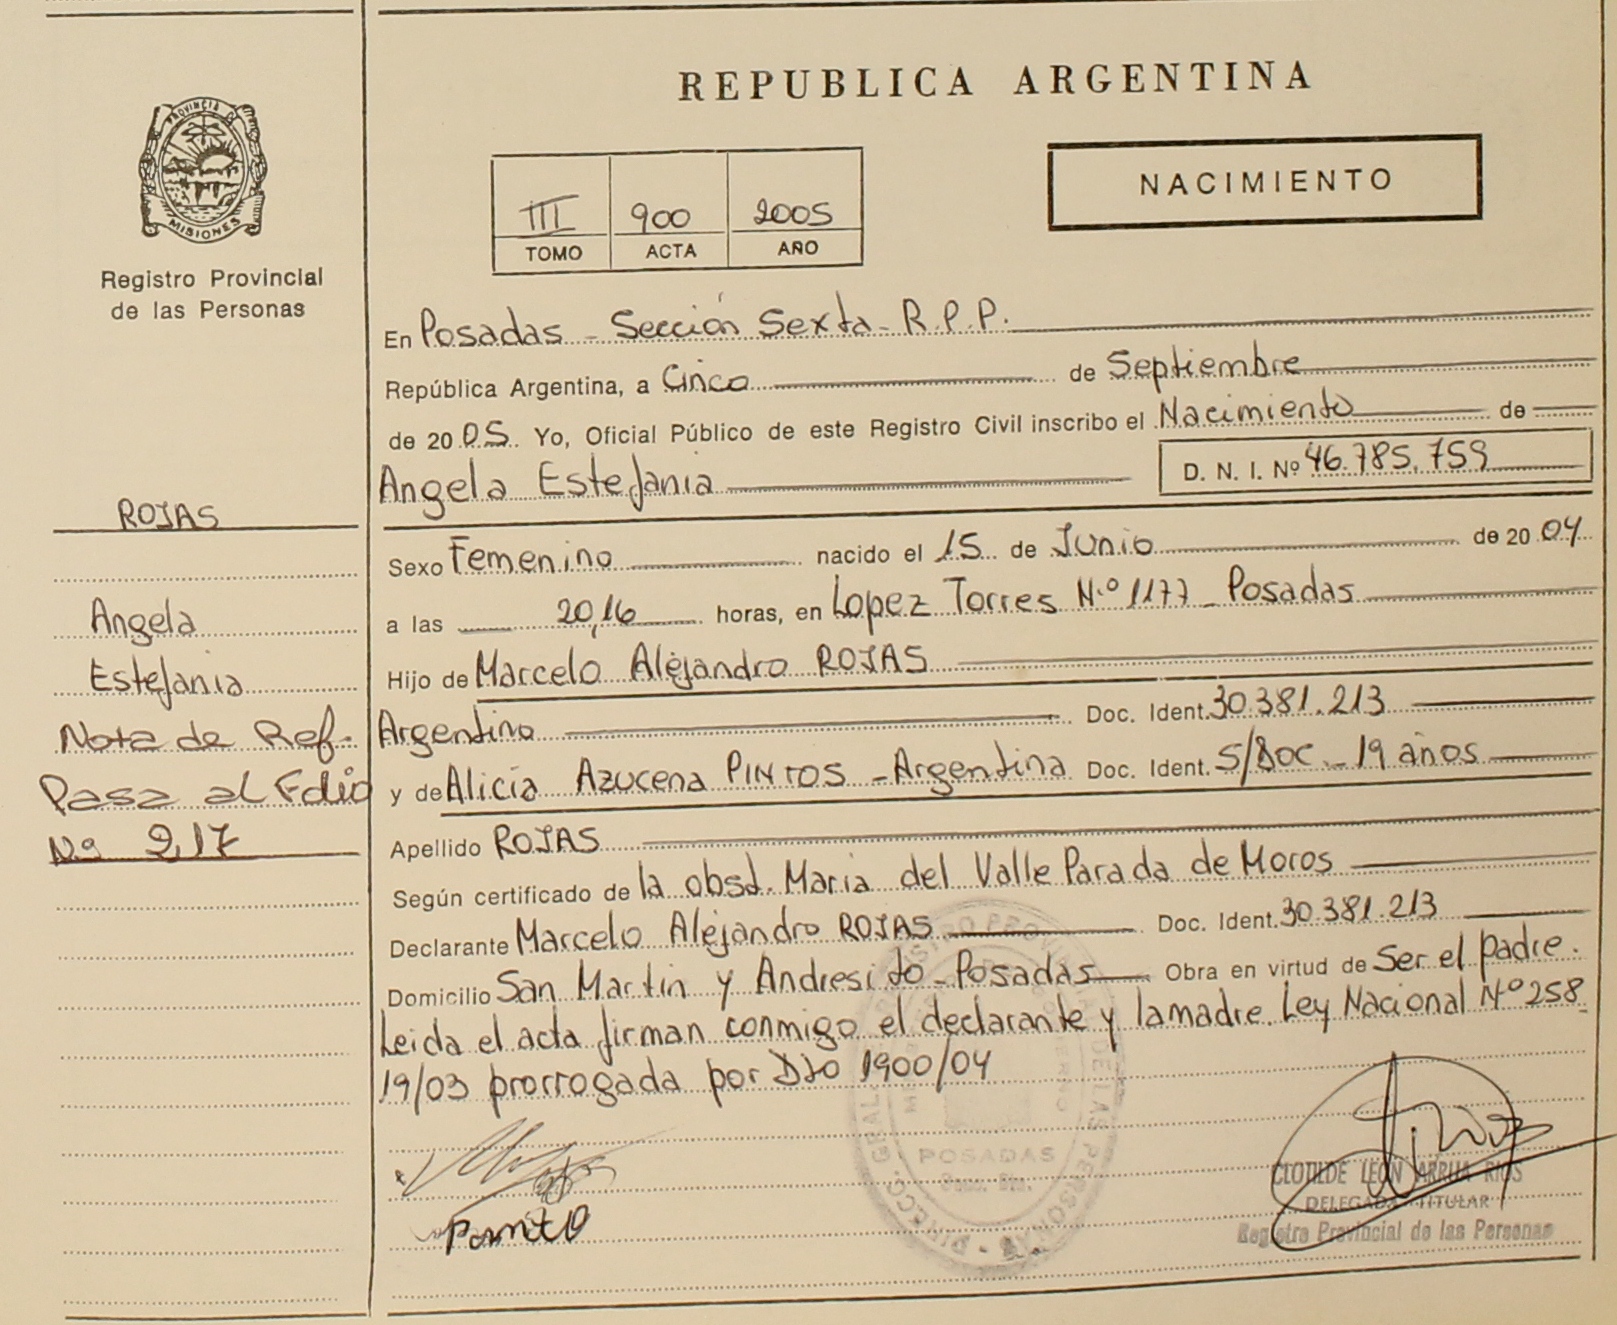 PROVINCIA DE
MISIONES
Registro Provincial
de las Personas
ROJAS
Angela
Estefania
Nota de Ref.
Pasa al Folio
Nº 217
REPUBLICA ARGENTINA
NACIMIENTO
III 900 2005
TOMO ACTA AÑO
En Posadas - Sección Sexta - R.P.P.
República Argentina, a Cinco de Septiembre
de 2005. Yo, Oficial Público de este Registro Civil inscribo el Nacimiento de
Angela Estefania D. N. I. Nº 46.785.759
Sexo Femenino nacido el 15 de Junio de 2004
a las 20,16 horas, en Lopez Torres N.º 1177 - Posadas
Hijo de Marcelo Alejandro ROJAS
Argentino Doc. Ident. 30.381.213
y de Alicia Azucena PINTOS - Argentina Doc. Ident. S/Doc - 19 años
Apellido ROJAS
Según certificado de la obst. Maria del Valle Parada de Moros
Declarante Marcelo Alejandro ROJAS Doc. Ident. 30.381.213
Domicilio San Martin y Andresito - Posadas Obra en virtud de Ser el padre.
Leida el acta firman conmigo el declarante y la madre. Ley Nacional Nº 258
19/03 prorrogada por Dto 1900/04
POSADAS
CLOTILDE LEON ARRUA RIOS
DELEGADA TITULAR
Registro Provincial de las Personas